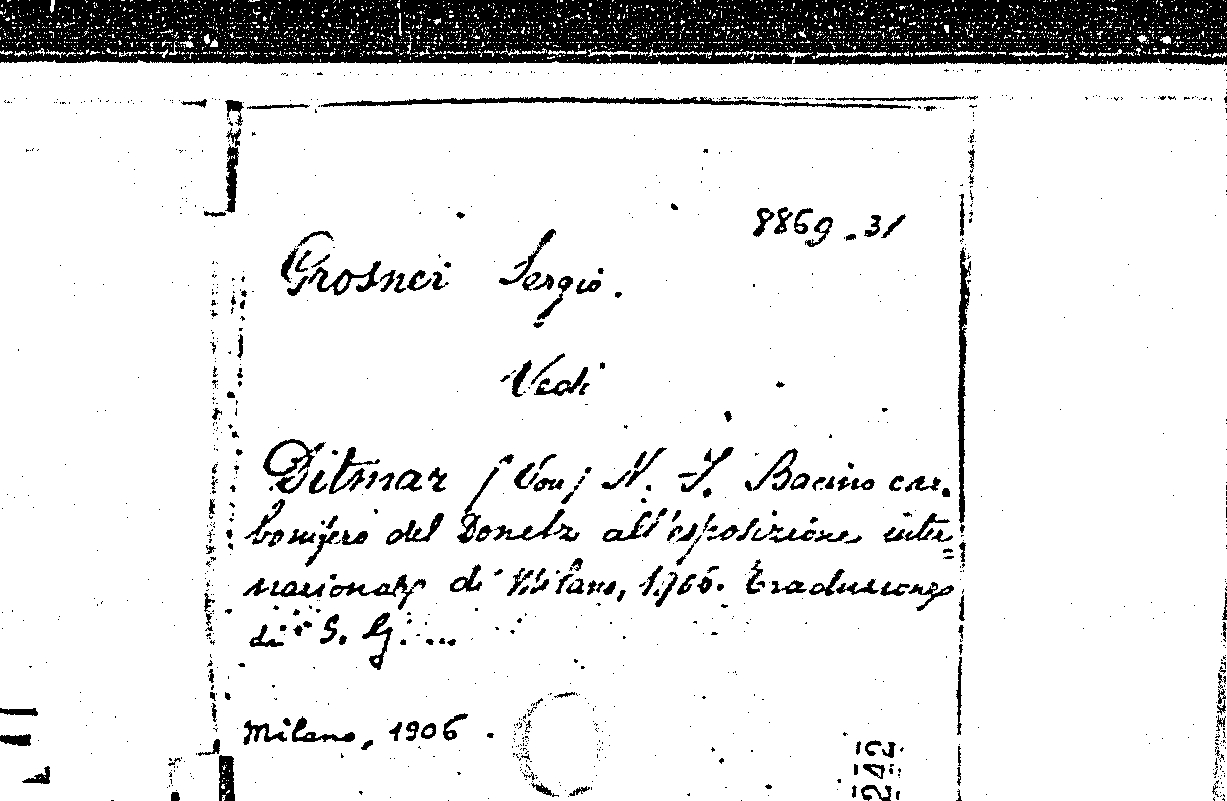 8869.31
Grosnei Sergio.
Vedi
Ditmar (Von) N. F. Bacino car.
bonifero del Donetz all'esposizione inter=
nazionale di Milano, 1906. Traduzione
di S. G. ...
Milano, 1906.
242